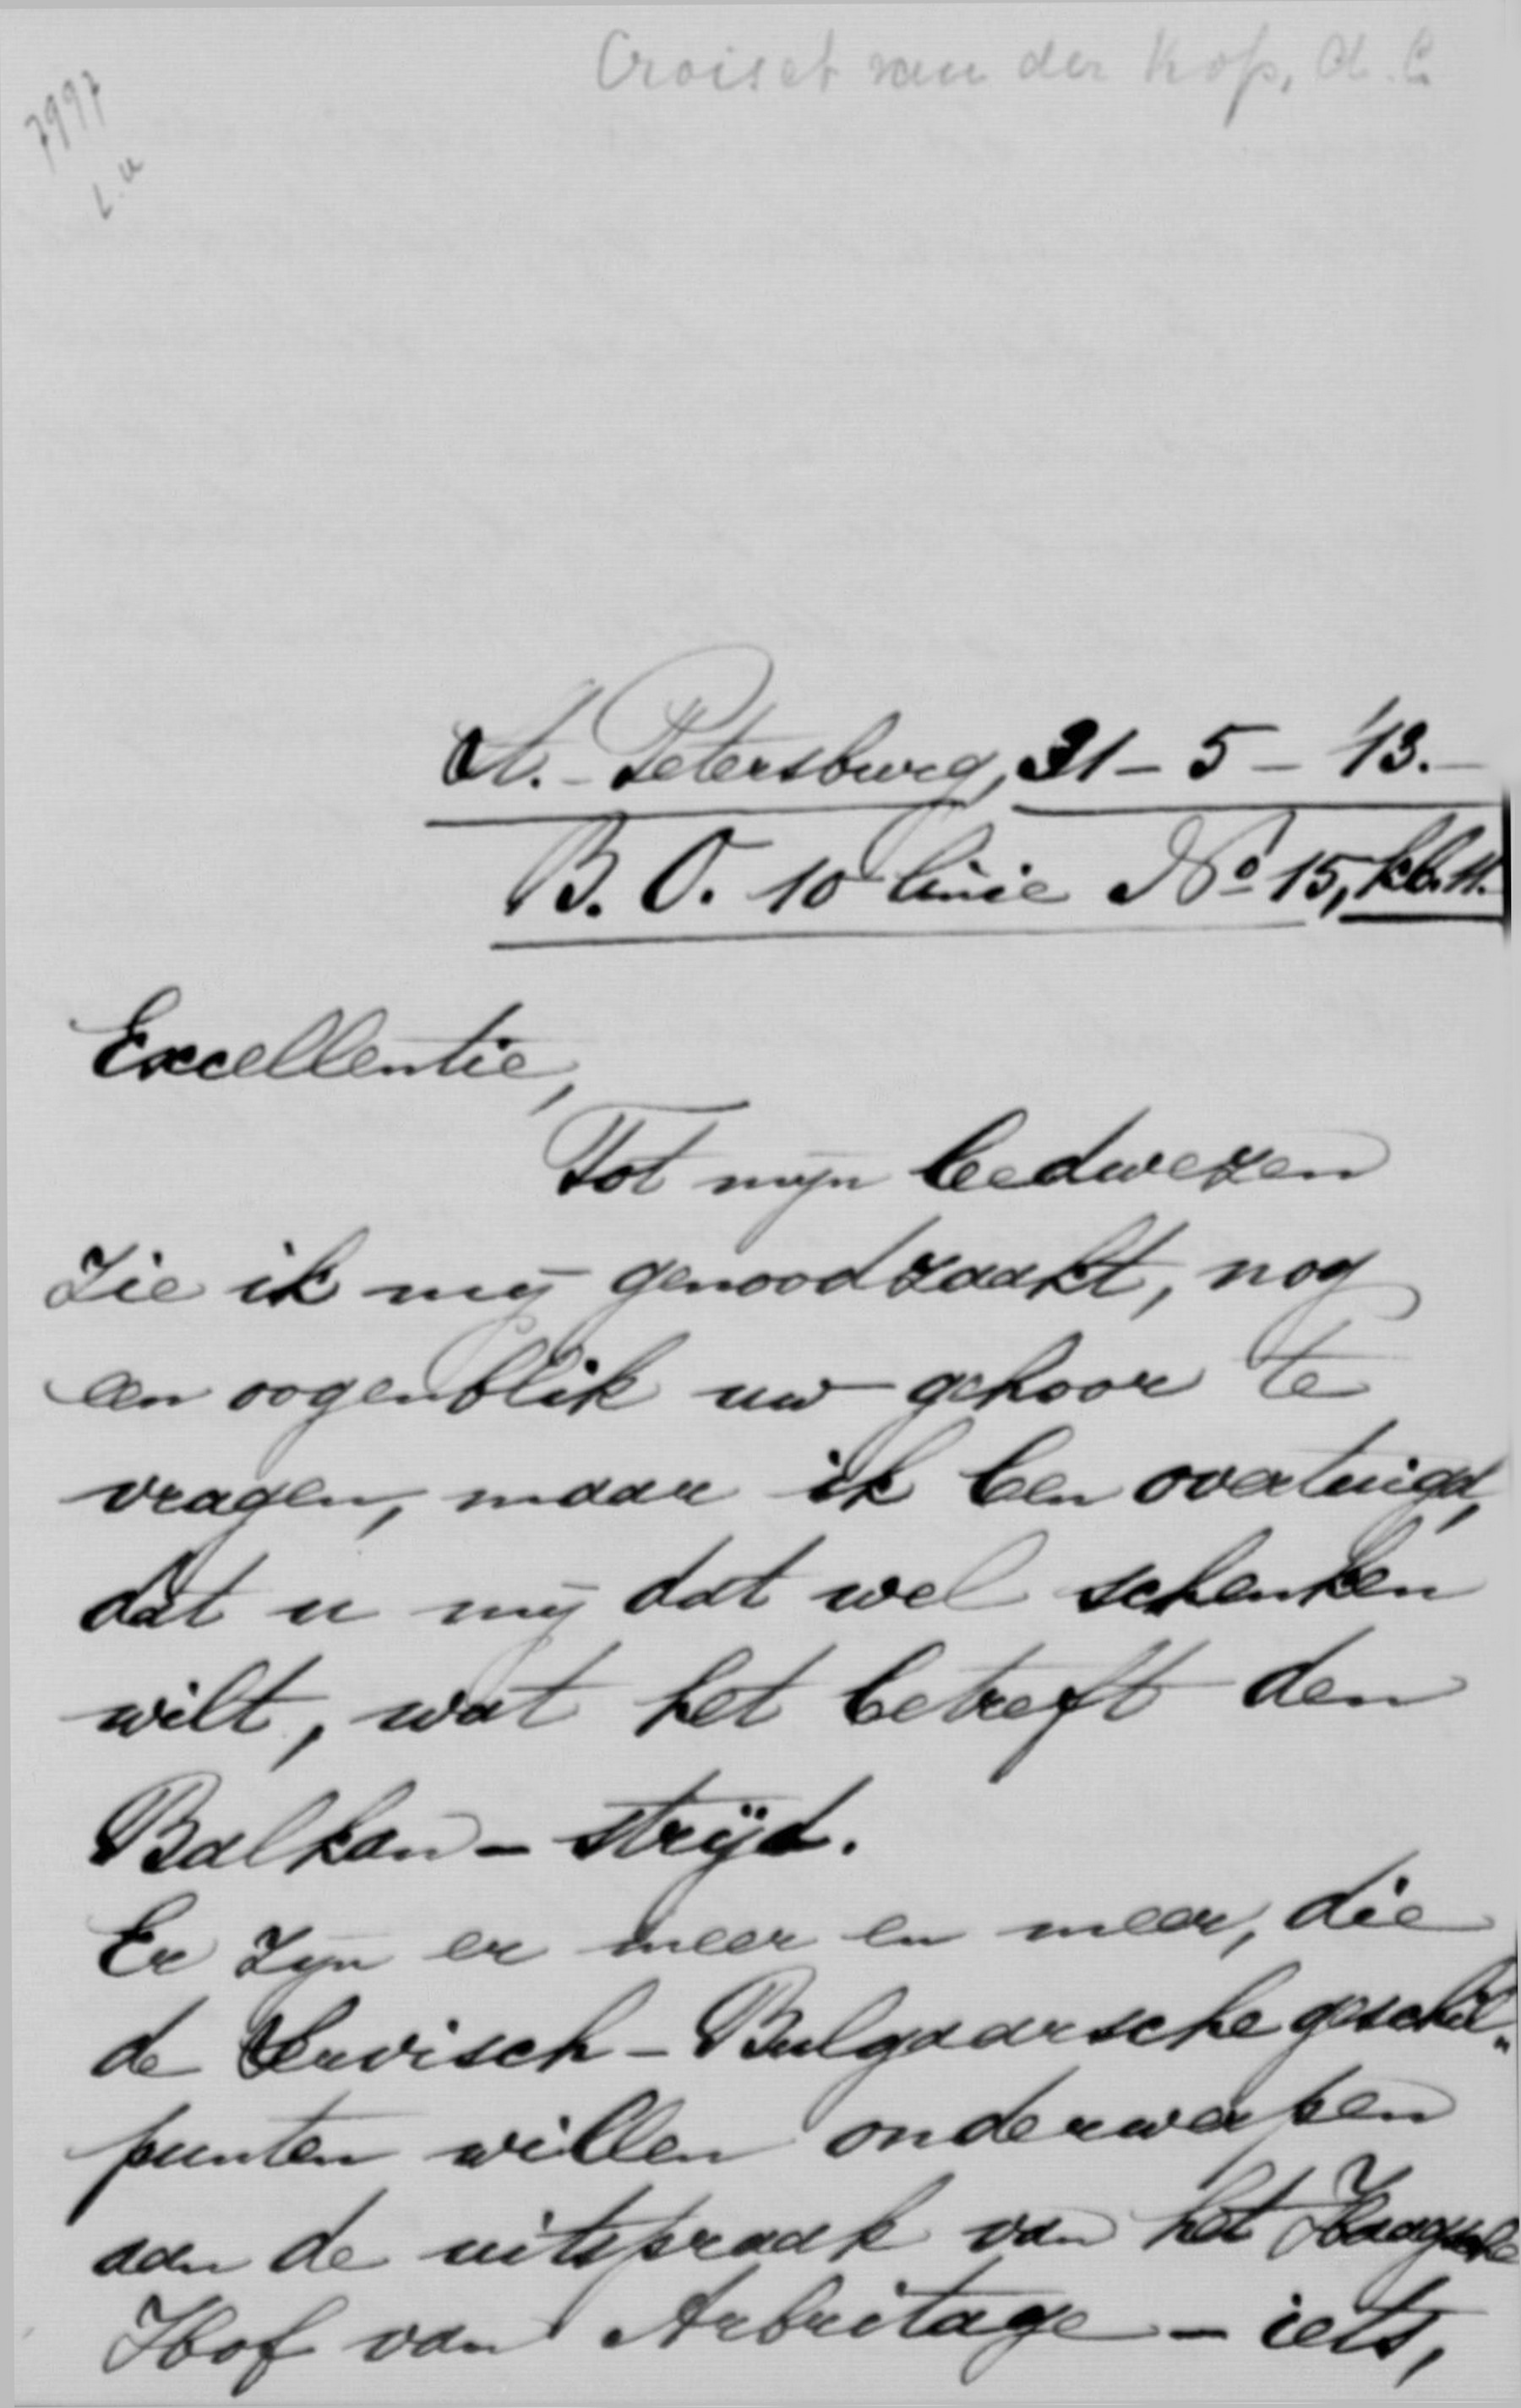 Croiset van der Kop, A. C.
7997
L. a
St.-Petersburg, 31-5-'13.-
B. O. 10 linie No 15, kb. 11.
Excellentie,
Tot mijn leedwezen
zie ik mij genoodzaakt, nog
een oogenblik uw gehoor te
vragen, maar ik ben overtuigd,
dat u mij dat wel schenken
wilt, wat het betreft den
Balkan-strijd.
Er zijn er meer en meer, die
de Servisch-Bulgaarsche geschil„
punten willen onderwerpen
aan de uitspraak van het Haagsche
Hof van Arbritage - iets,